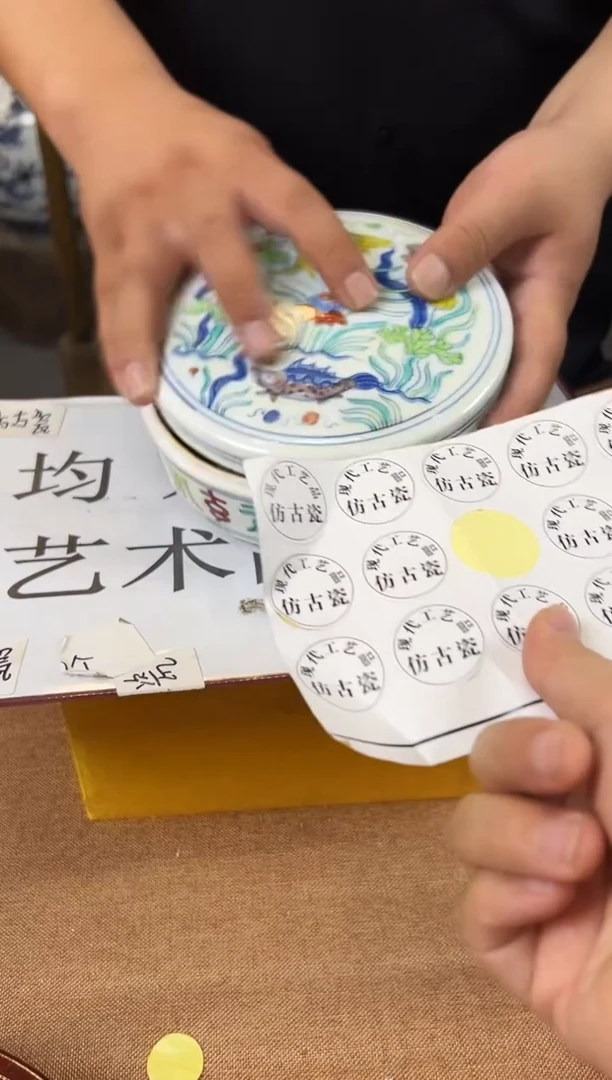 均
艺术
古
现代工艺品
仿古瓷
现代工艺品
仿古瓷
现代工艺品
仿古瓷
现代工艺品
仿古瓷
现代工艺品
仿古瓷
现代工艺品
仿古瓷
现代工艺品
仿古瓷
现代工艺品
仿古瓷
现代工艺品
仿古瓷
现代工艺品